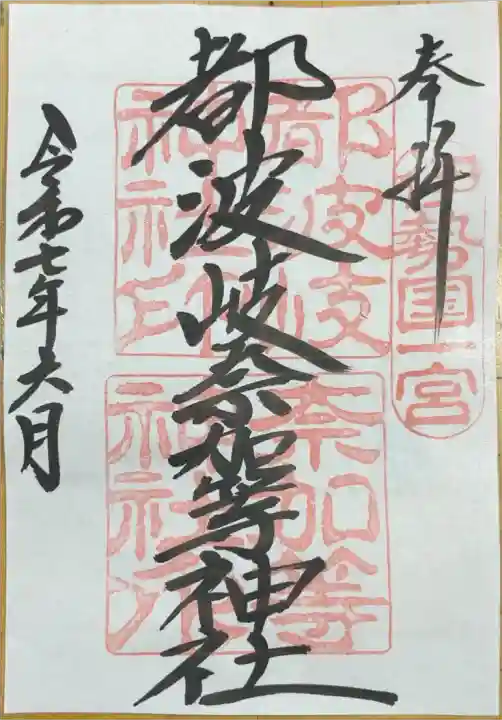 奉拝
伊勢国一宮
都波岐奈加等神社
都波岐
神社印
奈加等
神社
令和七年六月